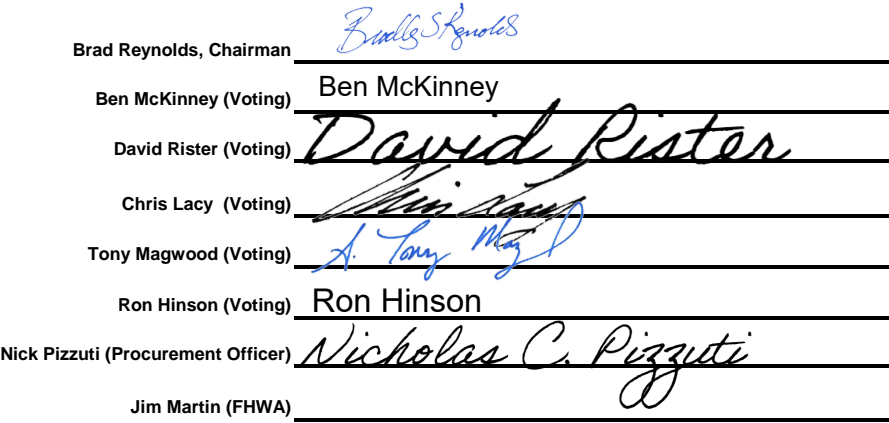 Brad Reynolds, Chairman Bradley S Reynolds
Ben McKinney (Voting) Ben McKinney
David Rister (Voting) David Rister
Chris Lacy (Voting) Chris Lacy
Tony Magwood (Voting) A. Tony Mag
Ron Hinson (Voting) Ron Hinson
Nick Pizzuti (Procurement Officer) Nicholas C. Pizzuti
Jim Martin (FHWA)